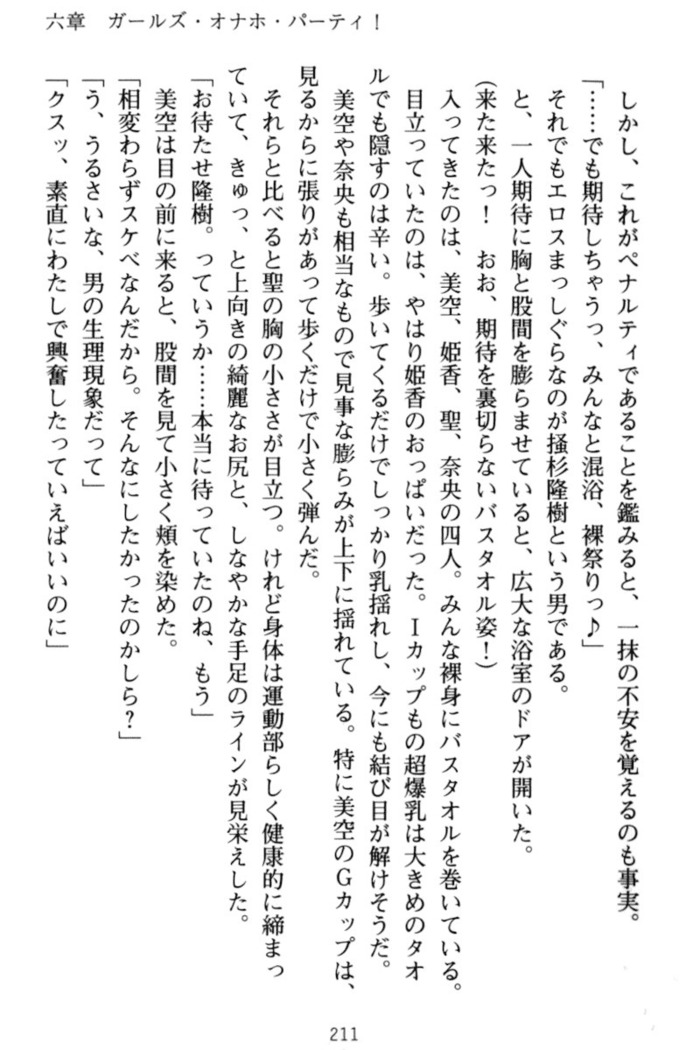 六章　ガールズ・オナホ・パーティ！
しかし、これがペナルティであることを鑑みると、一抹の不安を覚えるのも事実。
「……でも期待しちゃうっ、みんなと混浴、裸祭りっ♪」
それでもエロスまっしぐらなのが掻杉隆樹という男である。
と、一人期待に胸と股間を膨らませていると、広大な浴室のドアが開いた。
（来た来たっ！　おお、期待を裏切らないバスタオル姿！）
入ってきたのは、美空、姫香、聖、奈央の四人。みんな裸身にバスタオルを巻いている。
目立っていたのは、やはり姫香のおっぱいだった。Ｉカップもの超爆乳は大きめのタオ
ルでも隠すのは辛い。歩いてくるだけでしっかり乳揺れし、今にも結び目が解けそうだ。
美空や奈央も相当なもので見事な膨らみが上下に揺れている。特に美空のＧカップは、
見るからに張りがあって歩くだけで小さく弾んだ。
それらと比べると聖の胸の小ささが目立つ。けれど身体は運動部らしく健康的に締まっ
ていて、きゅっ、と上向きの綺麗なお尻と、しなやかな手足のラインが見栄えした。
「お待たせ隆樹。っていうか……本当に待っていたのね、もう」
美空は目の前に来ると、股間を見て小さく頬を染めた。
「相変わらずスケベなんだから。そんなにしたかったのかしら？」
「う、うるさいな、男の生理現象だって」
「クスッ、素直にわたしで興奮したっていえばいいのに」
211